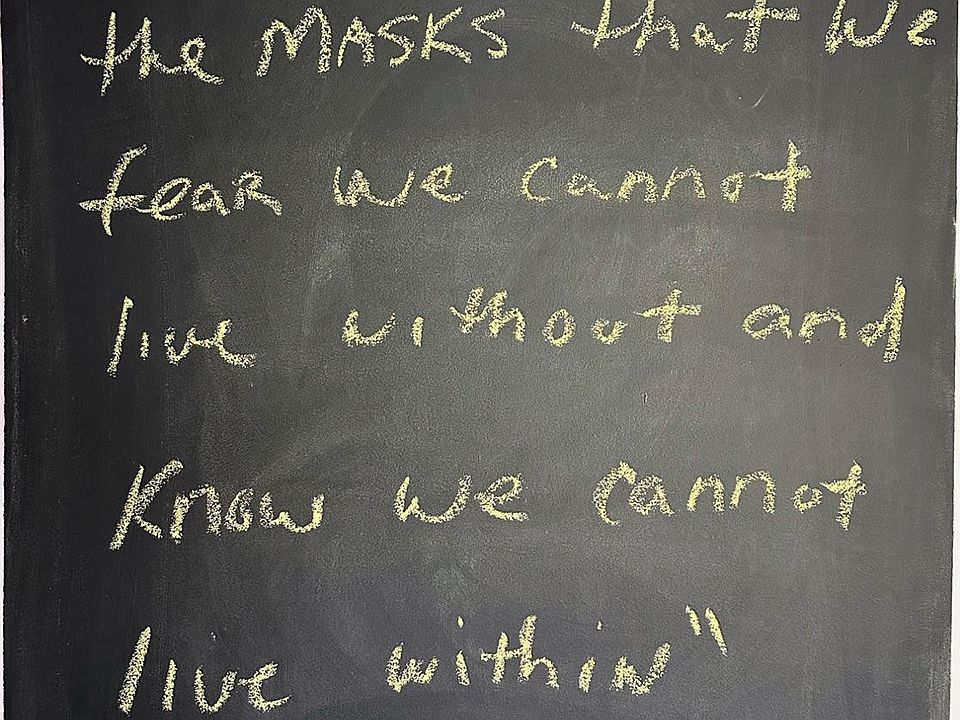 the MASKS that We
fear we cannot
live without and
Know we cannot
live within"